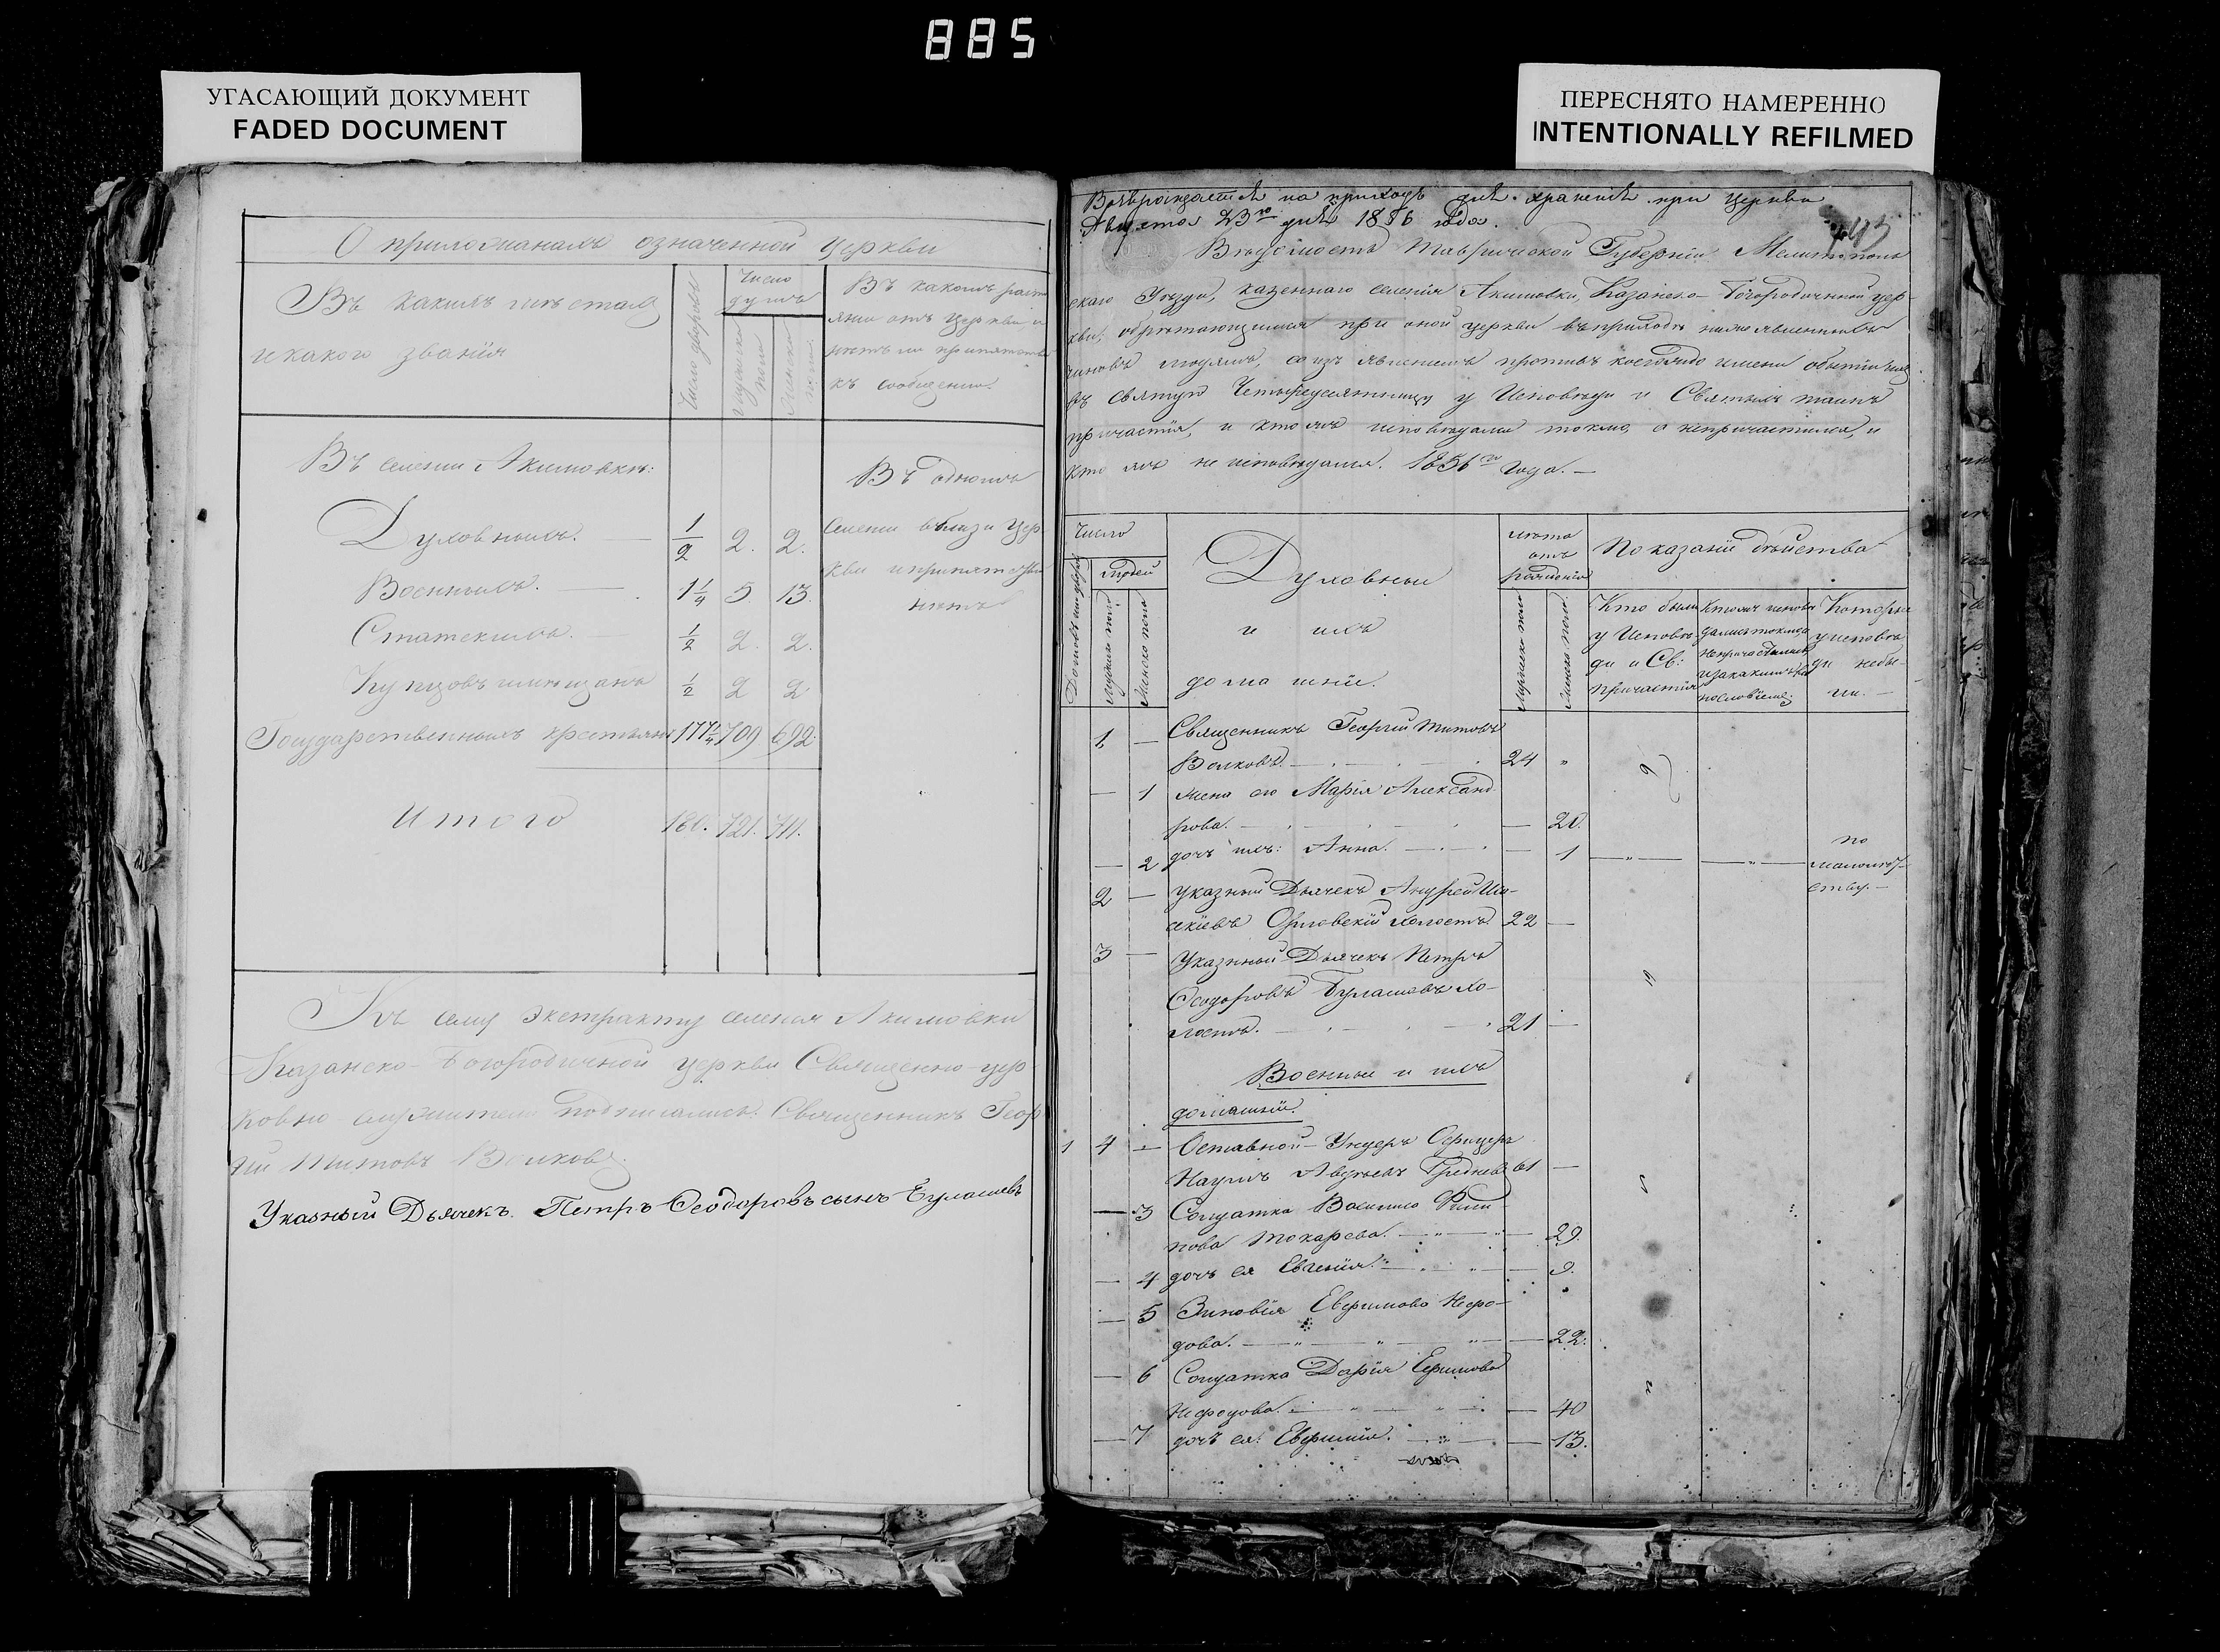 885
УГАСАЮЩИЙ ДОКУМЕНТ
FADED DOCUMENT
ПЕРЕСНЯТО НАМЕРЕННО
INTENTIONALLY REFILMED
О прихожанахъ означенной Церкви
Въ какихъ мѣстахъ
и какого званія
Число дворовъ
Число
душъ
мужеска
пола
женска
пола
Въ какомъ разст
яніи отъ Церкви и
нѣтъ ли препятств
къ сообщенію.
Въ селеніи Акимовкѣ:
Въ одномъ
Духовныхъ. 1/2 2. 2.
селеніи вблизи Цер
кви и препятствій
нѣтъ
Военныхъ. 1 1/4 5 13.
Статскихъ. 1/2 2. 2.
Купцовъ и мѣщанъ 1/2 2 2
Государственныхъ крестьянъ 177 1/4 709 692
Итого 180. 721. 711.
Къ сему экстракту селенія Акимовки
Казанско-Богородичной Церкви Священно-цер
ковно-служители подписались. Священникъ Геор
гій Титовъ Волковъ.
Указный Дьячекъ. Петръ Ѳеодоровъ сынъ Булашевъ
Возвращается на приходъ для храненія при церкви
Августа 23го дня 1856 года.
443
Вѣдомость Таврической Губерніи Мелитополь
скаго Уѣзда, казеннаго селенія Акимовки, Казанско-Богородичной цер-
кви, обрѣтающимся при оной церкви въ приходѣ нижеявленныхъ
чиновъ людямъ, со изъявленіемъ противъ коегождо имени о бытіи ихъ
въ Святую Четыредесятницу у Исповѣди и Святыхъ таинъ
причастія, и кто же исповѣдался токмо, а не причастился, и
кто же не исповѣдался. 1856го года.—
Число
Домовъ или дворовъ
Людей
Мужеска пола
Женска пола
Духовныи
и ихъ
домашніи.
лѣта
отъ
рожденія
Мужеска пола
Женска пола
Показаніи дѣйства
Кто были
у Исповѣ-
ди и Св:
причастія
Кто же исповѣ
дались токмо
не причастились
и за какимъ ви
нословіемъ.
Которые
у исповѣ
ди небы-
ли.—
1 — Священникъ Георгій Титовъ
Волковъ.— 24 "
— 1 жена его Марія Александ
рова.— — 20.
— 2 дочь ихъ: Анна.— — 1 —"— —"— по
малолѣт-
ству.—
2 — Указный Дьячекъ Андрей Иса-
акіевъ Орловскій холостъ 22 —
3 — Указный Дьячекъ Петръ
Ѳеодоровъ Булашевъ хо-
лостъ.— 21 —
Военныи и ихъ
домашніи.
1 4 — Оставной-Ундеръ Офицеръ
Наумъ Авдѣевъ Гридневъ 61 —
— 3 Солдатка Василиса Фили
пова Токарева.— — 29.
— 4 дочь ея Евгенія.— — 9.
— 5 Зиновія Евфимова Нефо-
дова.— — 22.
— 6 Солдатка Дарія Ефимова
Нефодова.— — 40
— 7 дочь ея: Евфимія.— — 13.